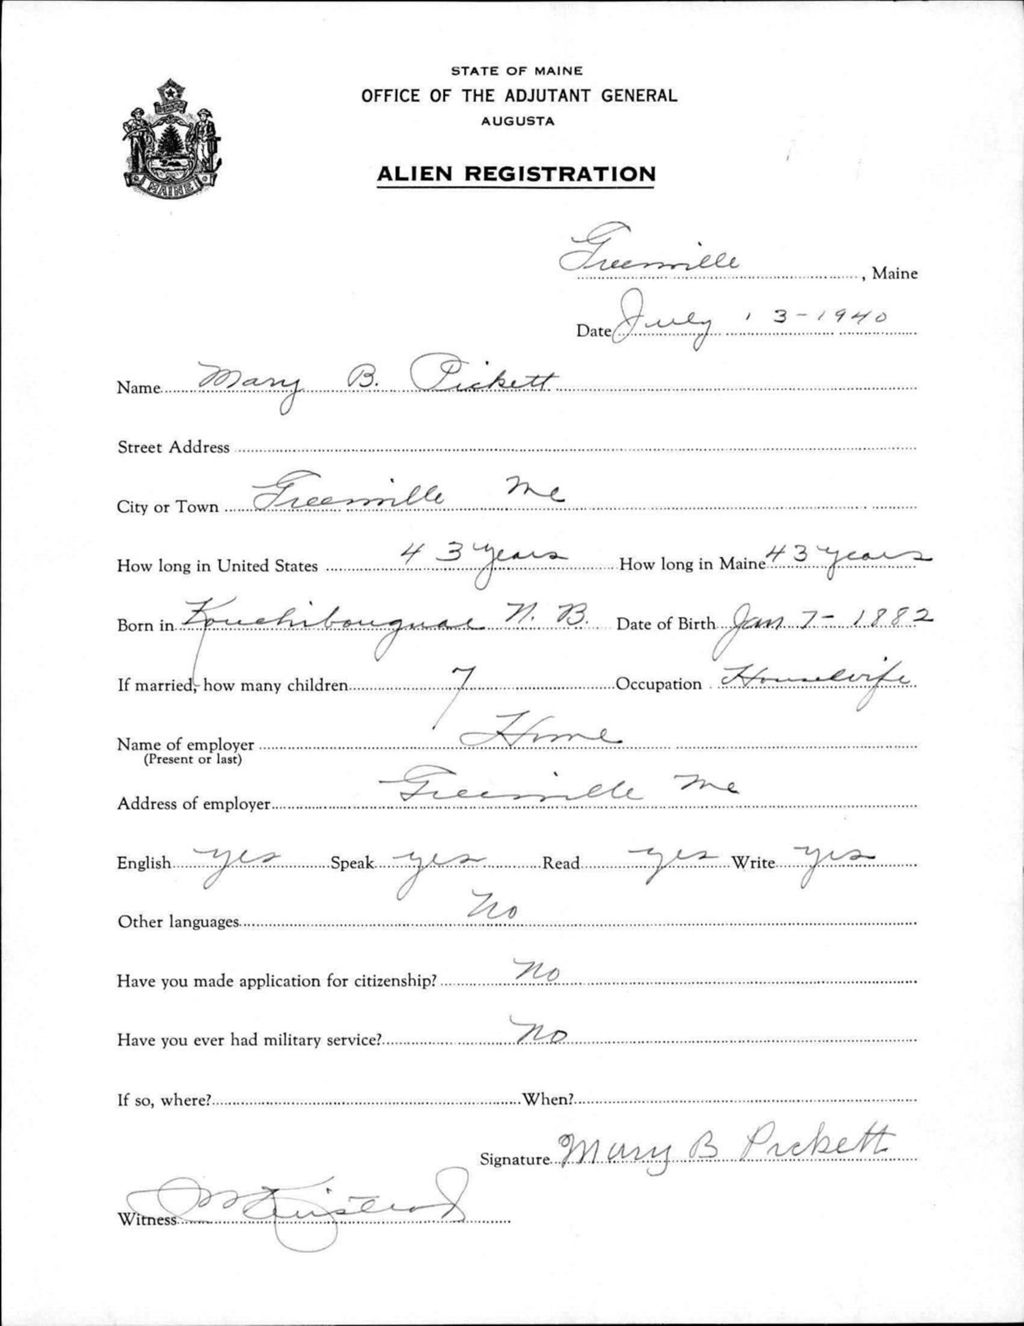 STATE OF MAINE
OFFICE OF THE ADJUTANT GENERAL
AUGUSTA
MAINE
ALIEN REGISTRATION
Greenville, Maine
Date July 13-1940
Name Mary B. Pickett
Street Address
City or Town Greenville Me
How long in United States 43 years How long in Maine 43 years
Born in Kouchibouguac N. B. Date of Birth Jan 7-1882
If married, how many children 7 Occupation Housewife
Name of employer Home
(Present or last)
Address of employer Greenville Me
English yes Speak yes Read yes Write yes
Other languages No
Have you made application for citizenship? No
Have you ever had military service? No
If so, where? When?
Signature Mary B Pickett
Witness